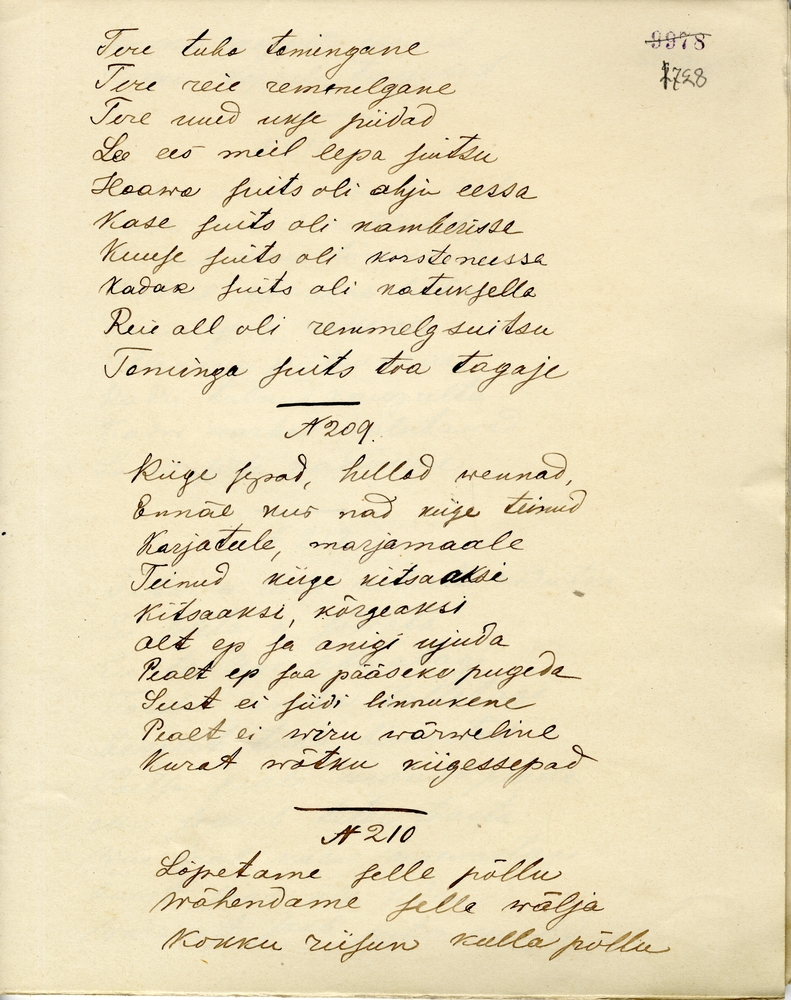 Tere tuba tomingane
Tere reie remmelgane
Tere uued ukse piidad
Lee ees meil lepa suitsu
Haawa suits oli ahju eessa
Kase suits oli kamberissa
Kuuse suits oli korsteneessa
Kadak suits oli katuksella
Reie all oli remmelg suitsu
Tominga suits toa tagaje
9978
1728
N 209.
Kiige sepad, hellad wennad,
Ennäe kus nad kiige teinud
Karjateele, marjamaale
Teinud kiige kitsaaksi
Kitsaaksi, kõrgeaksi
Alt ep sa anigi ujuda
Pealt ep saa pääseke pugeda
Sust ei siidi linnukene
Pealt ei wiru wärweline
Kurat wõtku kiigessepad
N 210
Lõpetame selle põllu
Wähendame sella wälja
Kokku riisun kulla põllu